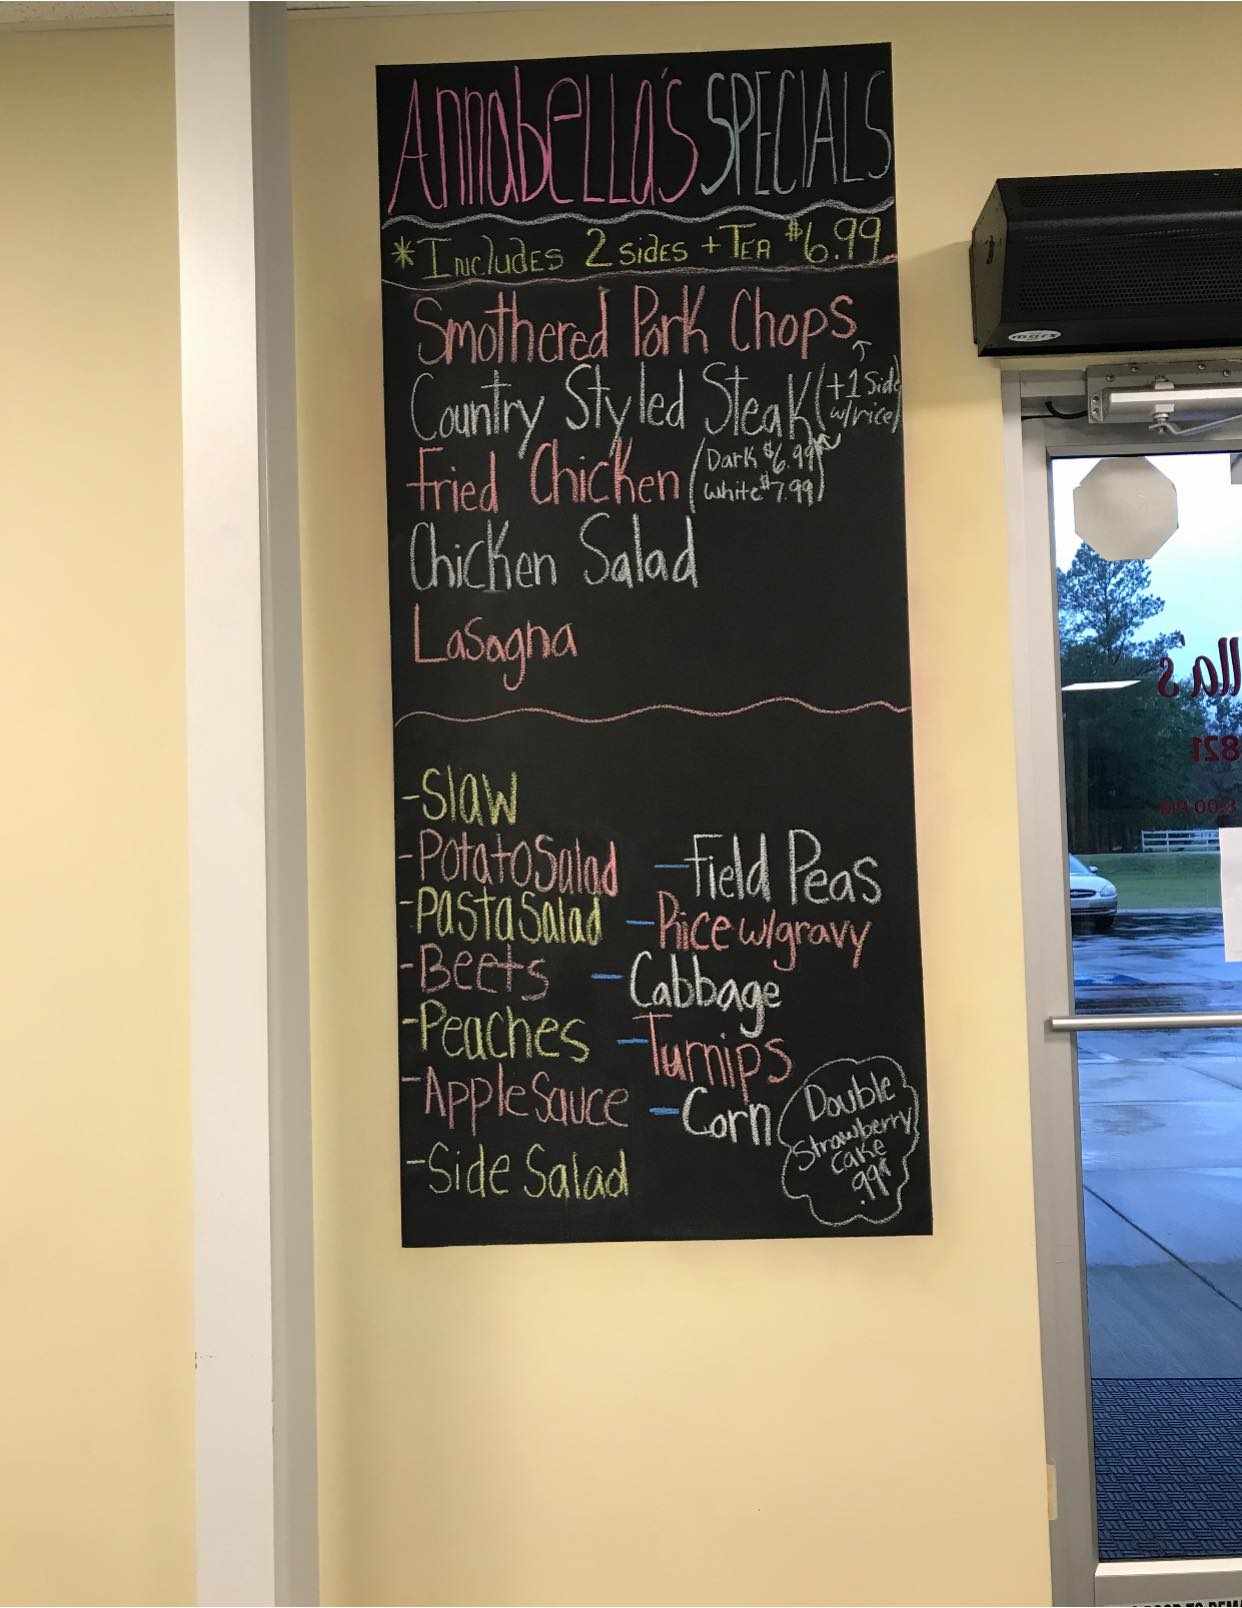 AnnabeLLa's SPECIALS
*Includes 2 sides + Tea $6.99
Smothered Pork Chops
Country Styled Steak (+1 Side
w/rice)
Fried Chicken (Dark $6.99
White $7.99)
Chicken Salad
Lasagna
-Slaw
-Potato Salad
-Field Peas
-Pasta Salad
-Rice w/gravy
-Beets
-Cabbage
-Peaches
-Turnips
-Apple Sauce
-Corn
-Side Salad
Double
Strawberry
Cake
.99¢
mars
lla's
821
:00 PM